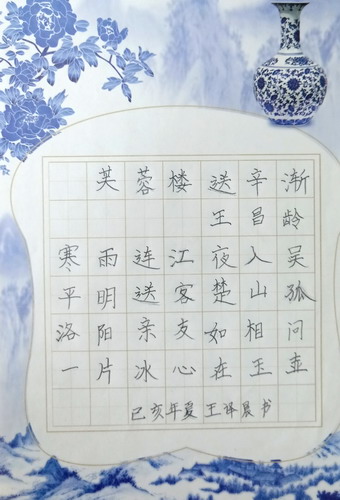 芙蓉楼送辛渐
王昌龄
寒雨连江夜入吴
平明送客楚山孤
洛阳亲友如相问
一片冰心在玉壶
己亥年夏 王译晨书